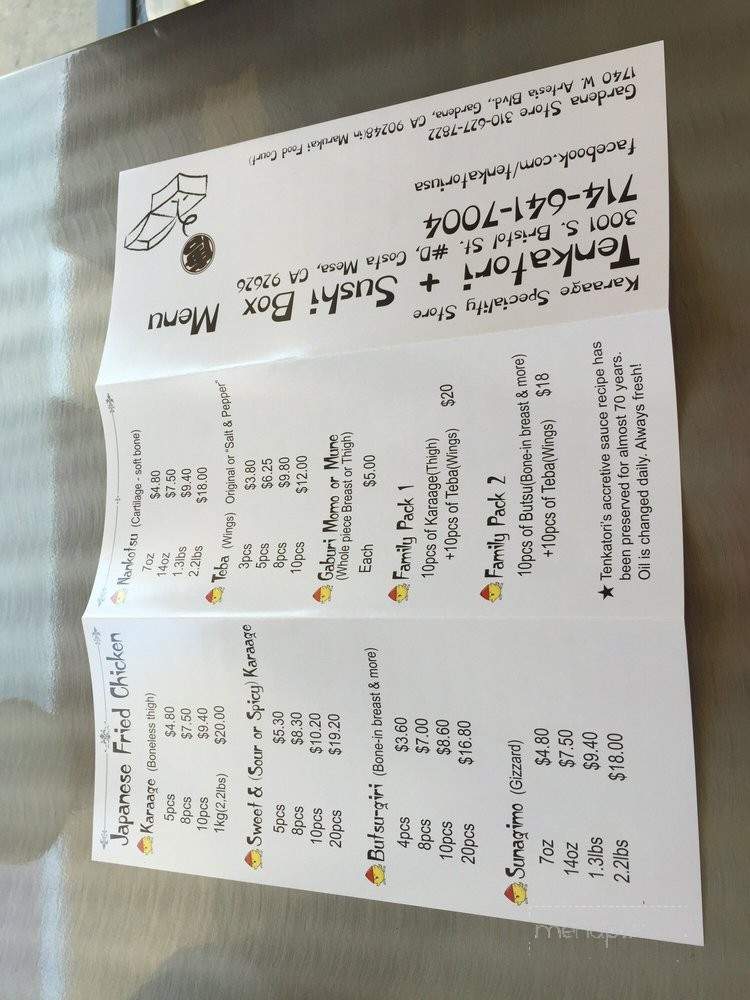 Japanese Fried Chicken
Karaage (Boneless thigh)
5pcs $4.80
8pcs $7.50
10pcs $9.40
1kg(2.2lbs) $20.00
Sweet & (Sour or Spicy) Karaage
5pcs $5.30
8pcs $8.30
10pcs $10.20
20pcs $19.20
Butsu-giri (Bone-in breast & more)
4pcs $3.60
8pcs $7.00
10pcs $8.60
20pcs $16.80
Sunagimo (Gizzard)
7oz $4.80
14oz $7.50
1.3lbs $9.40
2.2lbs $18.00
Nankotsu (Cartilage - soft bone)
7oz $4.80
14oz $7.50
1.3lbs $9.40
2.2lbs $18.00
Teba (Wings) Original or "Salt & Pepper"
3pcs $3.80
5pcs $6.25
8pcs $9.80
10pcs $12.00
Gaburi Momo or Mune
(Whole piece Breast or Thigh)
Each $5.00
Family Pack 1
10pcs of Karaage(Thigh)
+10pcs of Teba(Wings) $20
Family Pack 2
10pcs of Butsu(Bone-in breast & more)
+10pcs of Teba(Wings) $18
★Tenkatori's accretive sauce recipe has
been preserved for almost 70 years.
Oil is changed daily. Always fresh!
Karaage Speciality Store
Tenkatori + Sushi Box Menu
3001 S. Bristol St. #D, Costa Mesa, CA 92626
714-641-7004
facebook.com/tenkatoriusa
Gardena Store 310-627-7822
1740 W. Artesia Blvd., Gardena, CA 90248(in Marukai Food Court)